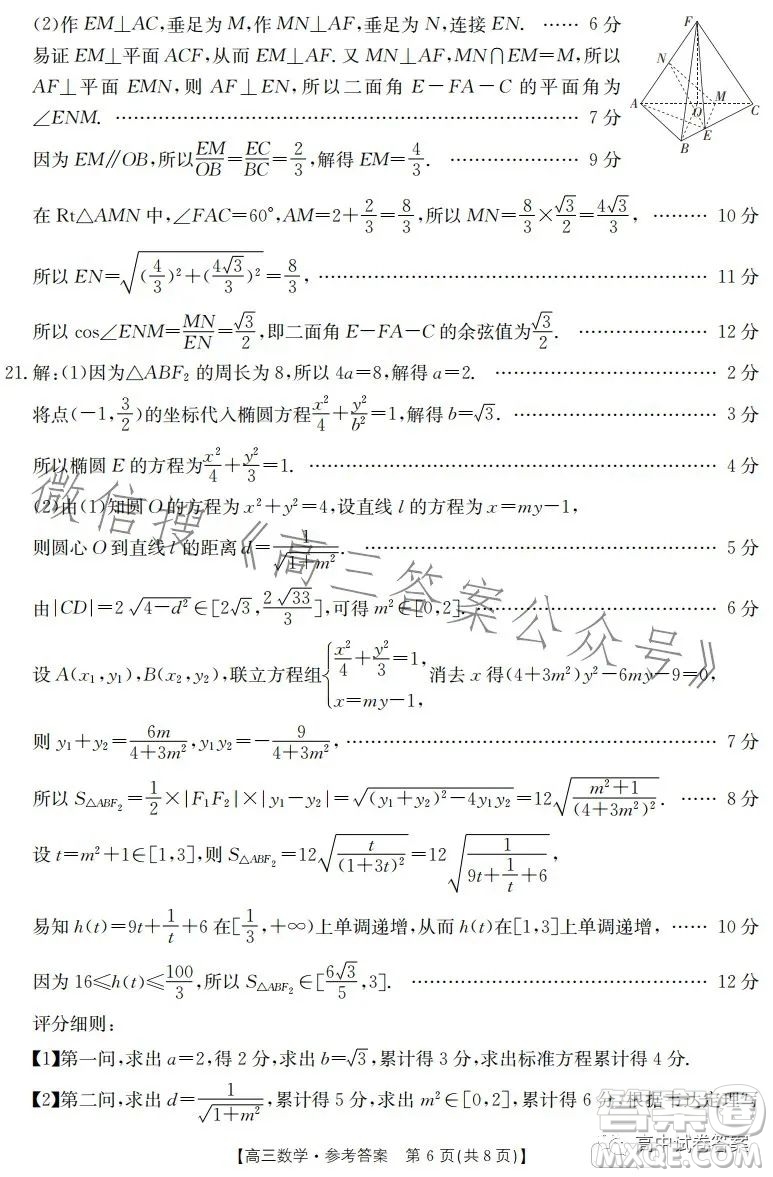 (2)作 EM⊥AC,垂足为 M,作 MN⊥AF,垂足为 N,连接 EN. …… 6 分
易证 EM⊥平面 ACF,从而 EM⊥AF. 又 MN⊥AF,MN∩EM=M,所以
AF⊥平面 EMN,则 AF⊥EN,所以二面角 E-FA-C 的平面角为
∠ENM. …… 7 分
F
N
A
M
O
C
E
B
因为 EM∥OB,所以 EM/OB=EC/BC=2/3,解得 EM=4/3. …… 9 分
在 Rt△AMN 中,∠FAC=60°,AM=2+2/3=8/3,所以 MN=8/3×√3/2=4√3/3, …… 10 分
所以 EN=√((4/3)²+(4√3/3)²)=8/3, …… 11 分
所以 cos∠ENM=MN/EN=√3/2,即二面角 E-FA-C 的余弦值为√3/2. …… 12 分
21. 解:(1)因为△ABF₂ 的周长为 8,所以 4a=8,解得 a=2. …… 2 分
将点(-1,3/2)的坐标代入椭圆方程 x²/4+y²/b²=1,解得 b=√3. …… 3 分
所以椭圆 E 的方程为 x²/4+y²/3=1. …… 4 分
(2)由(1)知圆 O 的方程为 x²+y²=4,设直线 l 的方程为 x=my-1,
则圆心 O 到直线 l 的距离 d=1/√(1+m²). …… 5 分
由|CD|=2√(4-d²)∈[2√3,2√33/3],可得 m²∈[0,2]. …… 6 分
设 A(x₁,y₁),B(x₂,y₂),联立方程组{x²/4+y²/3=1, x=my-1, 消去 x 得(4+3m²)y²-6my-9=0,
则 y₁+y₂=6m/(4+3m²),y₁y₂=-9/(4+3m²), …… 7 分
所以 S△ABF₂=1/2×|F₁F₂|×|y₁-y₂|=√((y₁+y₂)²-4y₁y₂)=12√((m²+1)/(4+3m²)²). …… 8 分
设 t=m²+1∈[1,3],则 S△ABF₂=12√(t/(1+3t)²)=12√(1/(9t+1/t+6)),
易知 h(t)=9t+1/t+6 在[1/3,+∞)上单调递增,从而 h(t)在[1,3]上单调递增, …… 10 分
因为 16≤h(t)≤100/3,所以 S△ABF₂∈[6√3/5,3]. …… 12 分
评分细则:
【1】第一问,求出 a=2,得 2 分,求出 b=√3,累计得 3 分,求出标准方程累计得 4 分.
【2】第二问,求出 d=1/√(1+m²),累计得 5 分,求出 m²∈[0,2],累计得 6 分,根据韦达定理写
【高三数学·参考答案 第 6 页(共 8 页)】
微信搜《高三答案公众号》
高中试卷答案